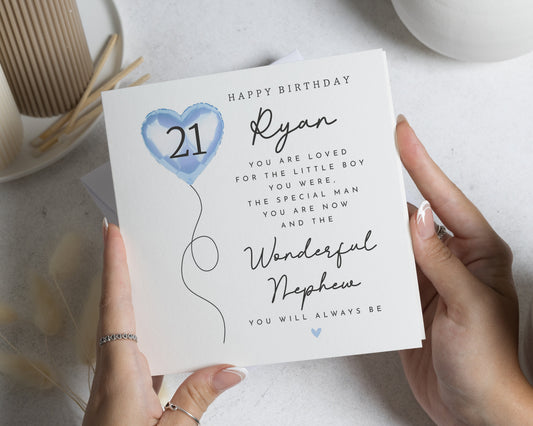 HAPPY BIRTHDAY
21
Ryan
YOU ARE LOVED
FOR THE LITTLE BOY
YOU WERE,
THE SPECIAL MAN
YOU ARE NOW
AND THE
Wonderful
Nephew
YOU WILL ALWAYS BE